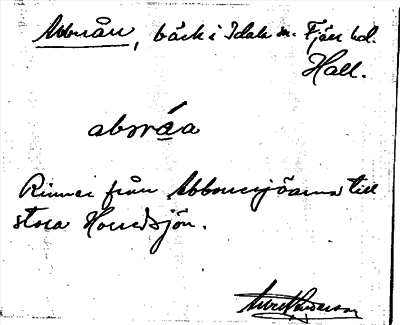 Abbnån, bäck i Idala sn. Fjäre hd.
Hall.
abnráa
Rinner från Abbornsjöarna till
stora Horredsjön.